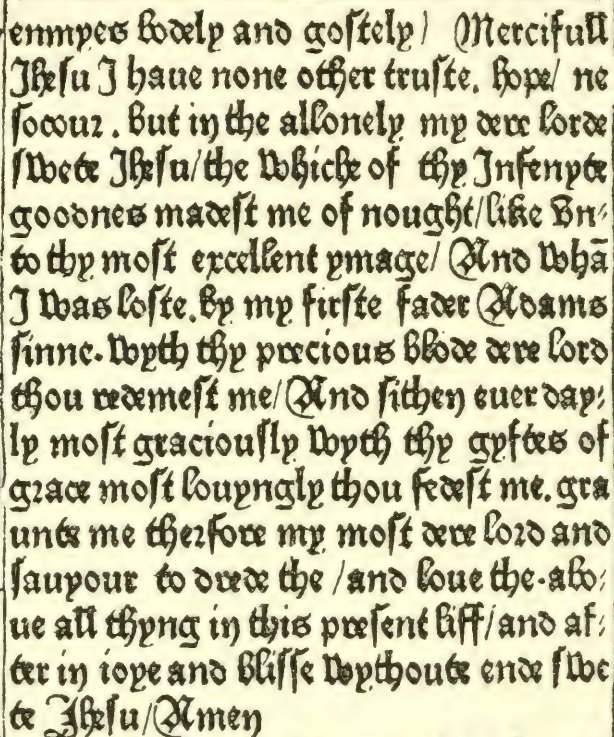 enmyes bodely and gostely / Mercifull
Jhesu J haue none other truste. hope / ne
socour . But in the allonely my dere lorde
swete Jhesu / the whiche of thy Jnfenyte
goodnes madest me of nought / like vn⸗
to thy most excellent ymage / And whā
J was loste. By my firste fader Adams
sinne. wyth thy precious blode dere lord
thou redemest me / And sithen euer day⸗
ly most graciously wyth thy gyftes of
grace most louyngly thou fedest me. gra
unte me therfore my most dere lord and
sauyour to drede the / and loue the. abo⸗
ue all thyng in this present liff / and af⸗
ter in ioye and blisse wythoute ende swe
te Jhesu / Amen